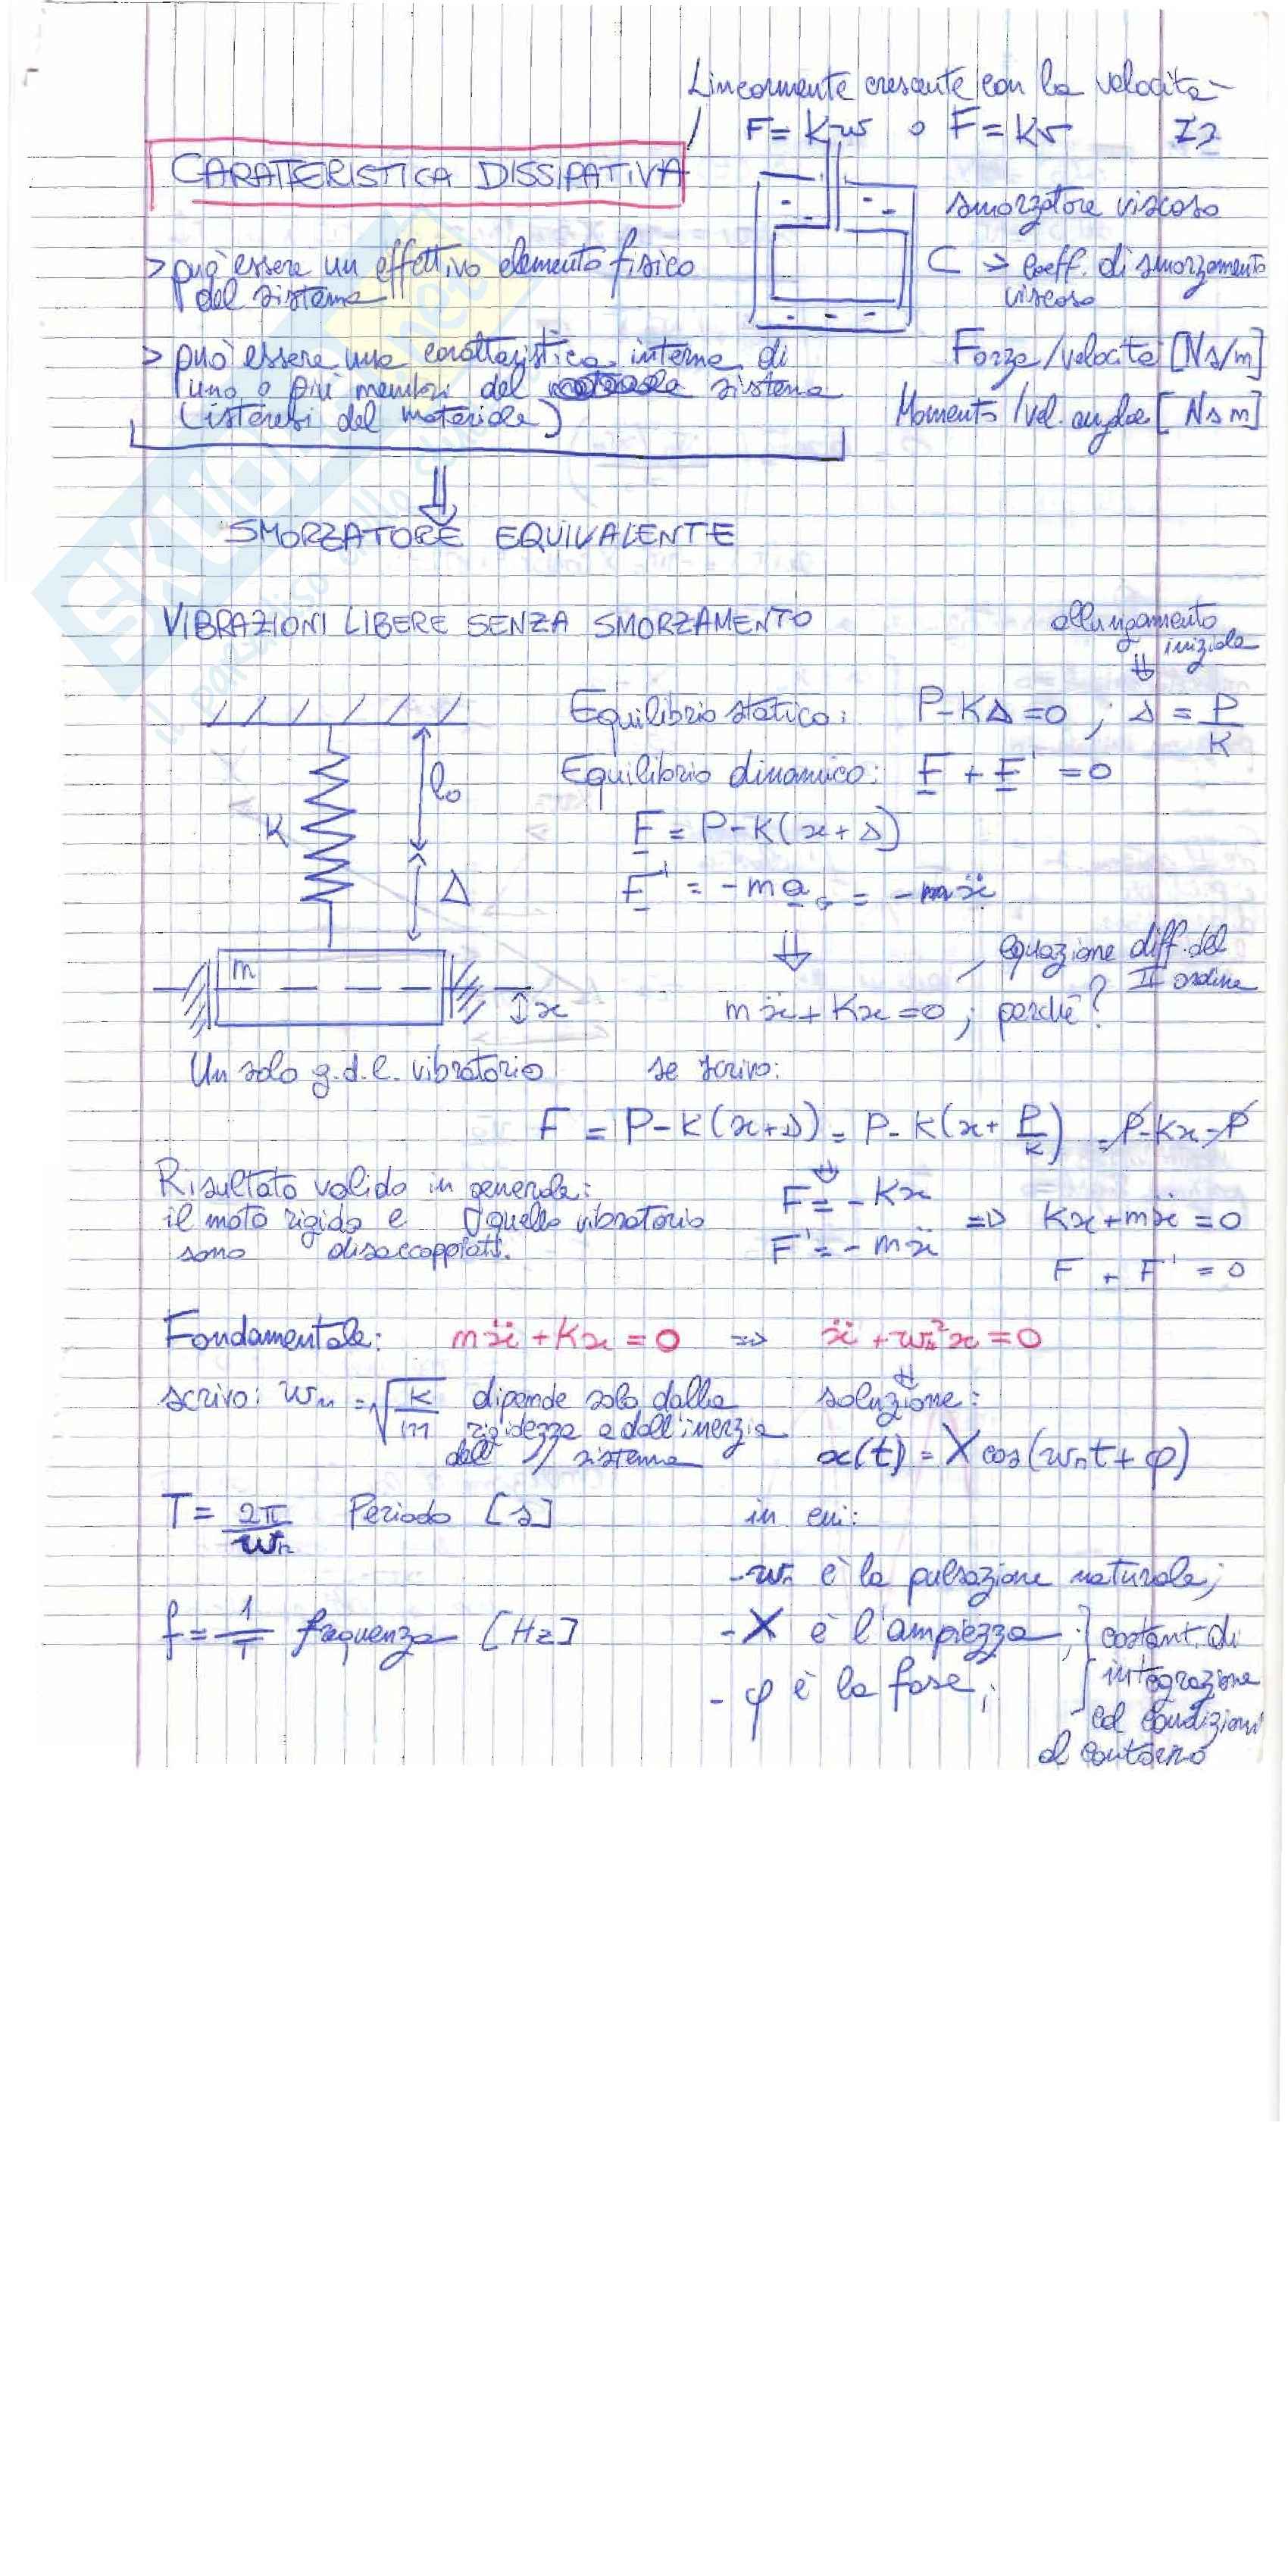 Linearmente crescente con la velocità
F = Kw o F = Kv
I2
CARATTERISTICA DISSIPATIVA
smorzatore viscoso
> può essere un effettivo elemento fisico
del sistema
C > coeff. di smorzamento
viscoso
> può essere una caratteristica interna di
uno o più membri del sistema
(isteresi del materiale)
Forza/velocità [Ns/m]
Momento/vel. angolare [Nsm]
⇓
SMORZATORE EQUIVALENTE
VIBRAZIONI LIBERE SENZA SMORZAMENTO
allungamento
iniziale
⇓
Equilibrio statico: P-KΔ=0 ; Δ = P/K
Equilibrio dinamico: F + F' = 0
l₀
K
F = P-K(x+Δ)
Δ
F' = -ma_G = -mẍ
⇓
m
x
equazione diff. del
II ordine
mẍ+Kx=0 ; perché?
Un solo g.d.l. vibratorio
se scrivo:
F = P-K(x+Δ) = P-K(x+P/K) = P-Kx-P
Risultato valido in generale:
il moto rigido e quello vibratorio
sono disaccoppiati.
⇓
F = -Kx
F' = -mẍ
⇒ Kx+mẍ=0
F + F' = 0
Fondamentale: mẍ+Kx=0 ⇒ ẍ+wₙ²x=0
scrivo: wₙ = √(K/m) dipende solo dalla
rigidezza e dall'inerzia
dell // sistema
⇓
soluzione:
x(t) = X cos(wₙt+φ)
T = 2π/wₙ Periodo [s]
f = 1/T frequenza [Hz]
in cui:
- wₙ è la pulsazione naturale;
- X è l'ampiezza;
- φ è la fase;
costanti di
integrazione
ed condizioni
al contorno